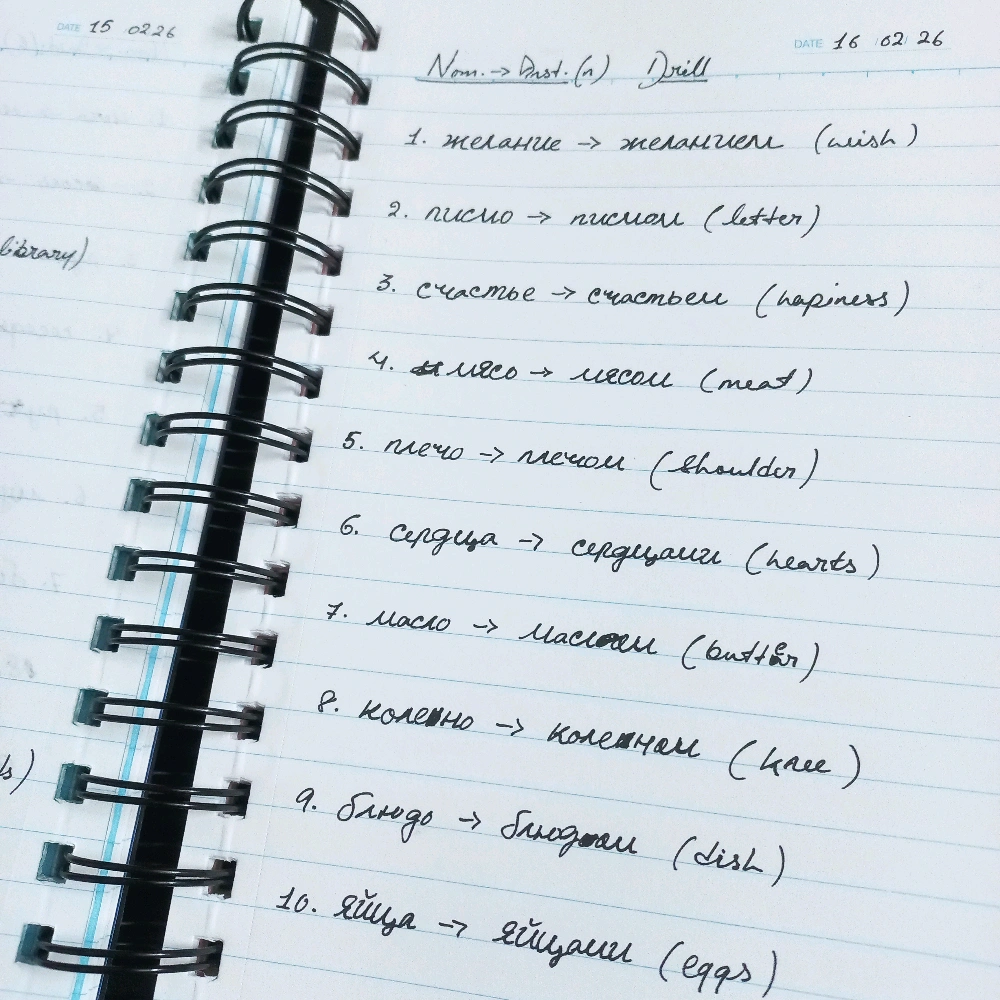 DATE 15 02 26
library)
s)
DATE 16 02 26
Nom. → Inst. (n) Drill
1. желание → желанием (wish)
2. писмо → писмом (letter)
3. счастье → счастьем (hapiness)
4. мясо → мясом (meat)
5. плечо → плечом (shoulder)
6. сердца → сердцами (hearts)
7. масло → маслом (butter)
8. колено → коленом (knee)
9. блюдо → блюдом (dish)
10. яйца → яйцами (eggs)